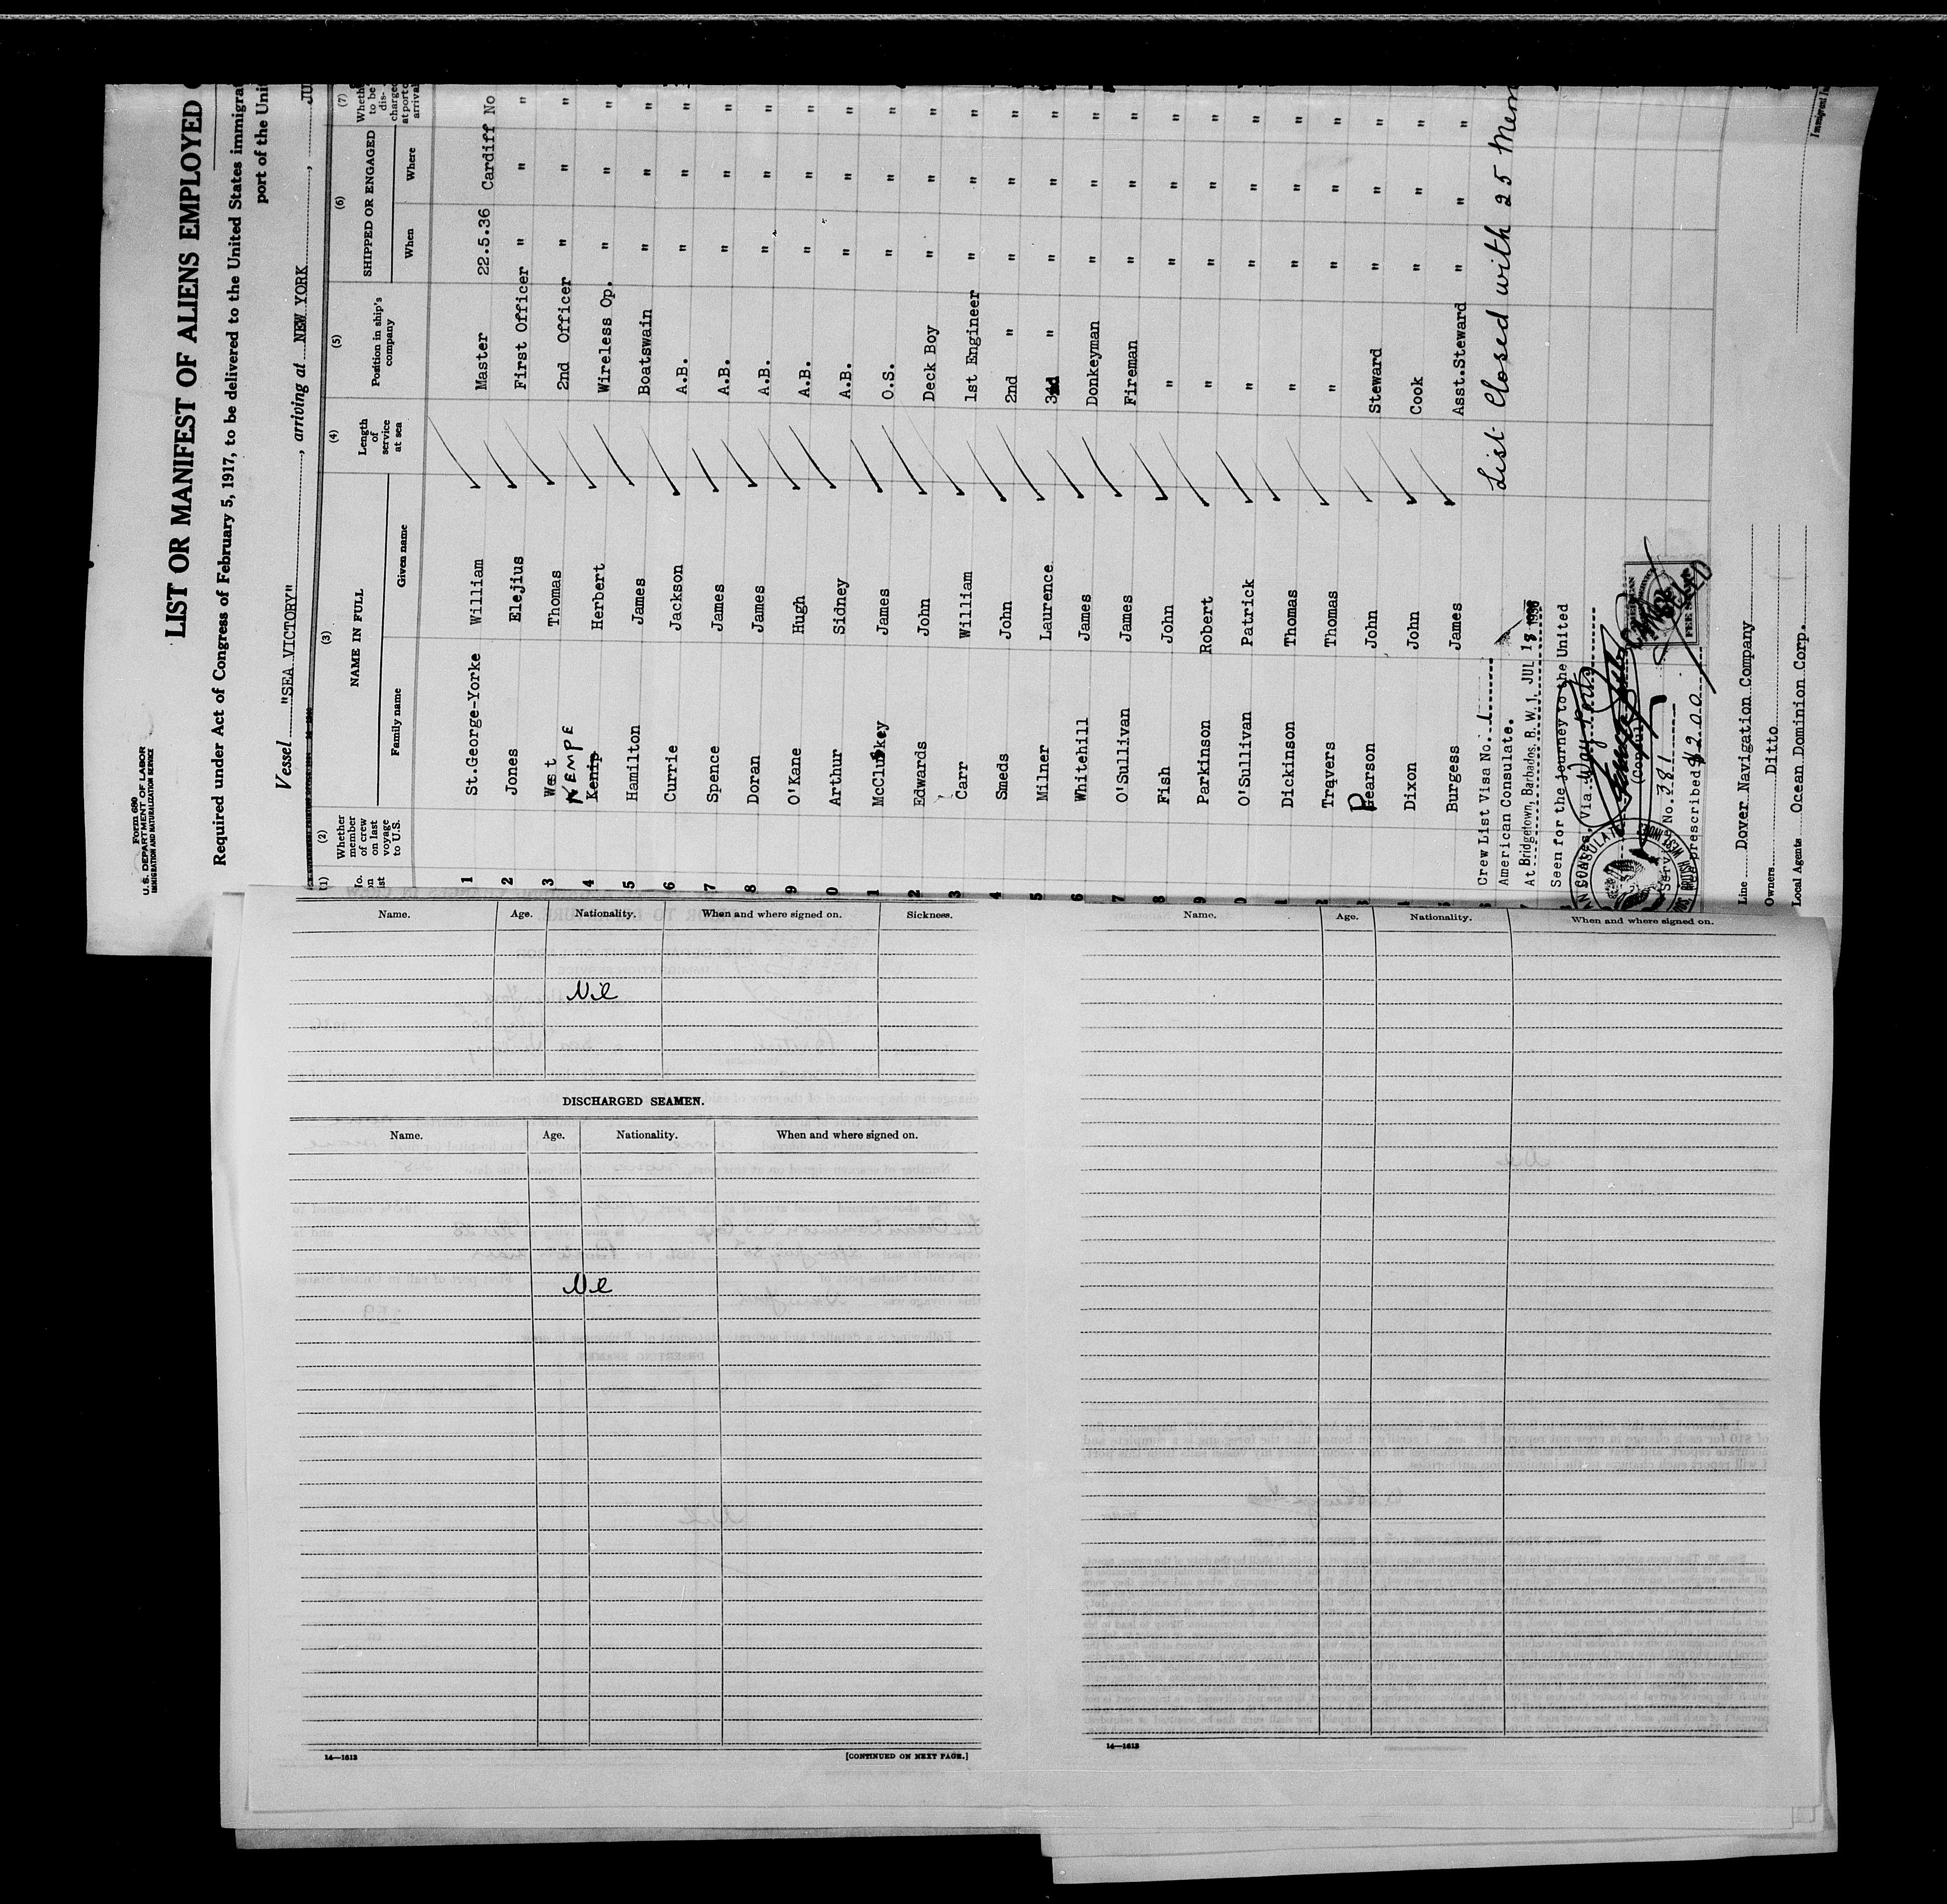 Form 680
U. S. DEPARTMENT OF LABOR
IMMIGRATION AND NATURALIZATION SERVICE
LIST OR MANIFEST OF ALIENS EMPLOYED
Required under Act of Congress of February 5, 1917, to be delivered to the United States immigrat
port of the Unit
Vessel "SEA VICTORY", arriving at NEW YORK, JU
(1) (2) (3) (4) (5) (6) (7)
Whether member of crew on last voyage to U.S.
NAME IN FULL
Family name Given name
Length of service at sea
Position in ship's company
SHIPPED OR ENGAGED
When Where
Wheth to be dis- charged at port o arrival
1 St.George-Yorke William Master 22.5.36 Cardiff No
2 Jones Elejius First Officer " " "
3 West Thomas 2nd Officer " " "
4 Kenip KEMPE Herbert Wireless Op. " " "
5 Hamilton James Boatswain " " "
6 Currie Jackson A.B. " " "
7 Spence James A.B. " " "
8 Doran James A.B. " " "
9 O'Kane Hugh A.B. " " "
0 Arthur Sidney A.B. " " "
1 McCluskey James O.S. " " "
2 Edwards John Deck Boy " " "
3 Carr William 1st Engineer " " "
4 Smeds John 2nd " " " "
5 Milner Laurence 3rd " " " "
6 Whitehill James Donkeyman " " "
7 O'Sullivan James Fireman " " "
8 Fish John " " " "
9 Parkinson Robert " " " "
0 O'Sullivan Patrick " " " "
1 Dickinson Thomas " " " "
2 Travers Thomas " " " "
3 Pearson John Steward " " "
4 Dixon John Cook " " "
5 Burgess James Asst.Steward " " "
List Closed with 25 Mem
Crew List Visa No. 1
American Consulate.
At Bridgetown, Barbados, B. W. I. JUL 18 1936
Seen for the journey to the United
States, Via
(Consul)
Service No. 381
Fee prescribed $2.00
FEE STAMP
Line Dover Navigation Company
Owners Ditto
Local Agents Ocean Dominion Corp.
Immigrant In
Name. Age. Nationality. When and where signed on. Sickness.
Nil
DISCHARGED SEAMEN.
Name. Age. Nationality. When and where signed on.
Nil
14—1613 [CONTINUED ON NEXT PAGE.]
Name. Age. Nationality. When and where signed on.
14—1613